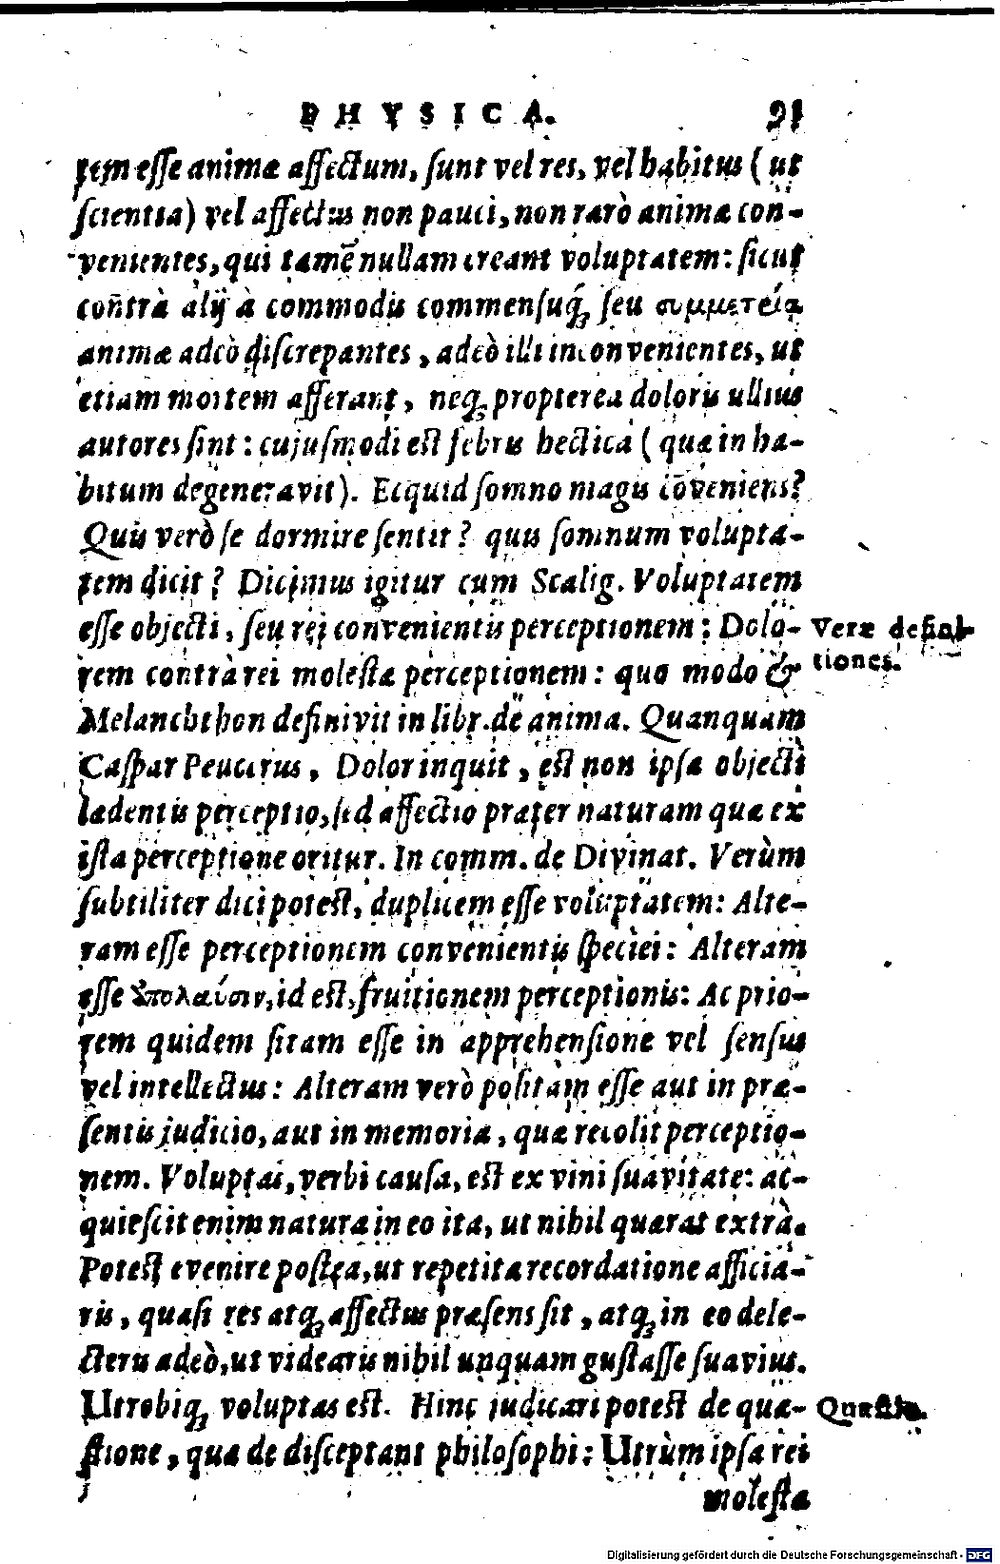 PHYSICA. 91
tem esse animæ affectum, sunt vel res, vel habitus (ut
scientia) vel affectus non pauci, non rarò animæ con-
venientes, qui tamē nullam creant voluptatem: sicut
coñtrà alij à commodis commensuq́; seu συμμετεία
animæ adeò discrepantes, adeò illi inconvenientes, ut
etiam mortem afferant, neq; propterea doloris ullius
autores sint: cujusmodi est febris hectica (quæ in ha-
bitum degeneravit). Ecquid somno magis cōveniens?
Quis verò se dormire sentit? quis somnum volupta-
tem dicit? Dicimus igitur cum Scalig. Voluptatem
esse objecti, seu rei convenientis perceptionem: Dolo-
rem contrà rei molestæ perceptionem: quo modo &
Melanchthon definivit in libr. de anima. Quanquam
Caspar Peucerus, Dolor inquit, est non ipsa objecti
lædentis perceptio, sed affectio præter naturam quæ ex
ista perceptione oritur. In comm. de Divinat. Verùm
subtiliter dici potest, duplicem esse voluptatem: Alte-
ram esse perceptionem convenientis speciei: Alteram
esse ἀπολαύσιν, id est, fruitionem perceptionis: Ac prio-
rem quidem sitam esse in apprehensione vel sensus
vel intellectus: Alteram verò positam esse aut in præ-
sentis judicio, aut in memoria, quæ recolit perceptio-
nem. Voluptas, verbi causa, est ex vini suavitate: ac-
quiescit enim natura in eo ita, ut nihil quærat extrà.
Potest evenire postea, ut repetita recordatione afficia-
ris, quasi res atq; affectus præsens sit, atq; in eo dele-
cteris adeò, ut videaris nihil unquam gustasse suavius.
Utrobiq; voluptas est. Hinc judicari potest de quæ-
stione, qua de disceptant philosophi: Utrùm ipsa rei
molestæ
Veræ defini-
tiones.
Quæstio.
Digitalisierung gefördert durch die Deutsche Forschungsgemeinschaft - DFG